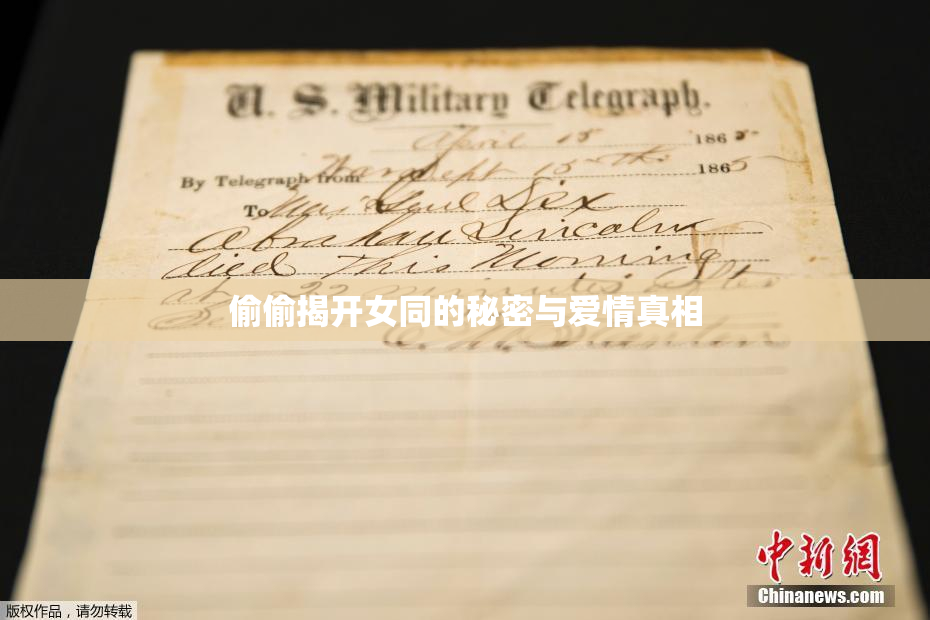 U. S. Military Telegraph.
April 15 1865
By Telegraph from War Dept 15th 1865
To Maj Genl Dix
Abraham Lincoln
died This Morning
at 22 minutes after
偷偷揭开女同的秘密与爱情真相
E. M. Stanton
中新网
Chinanews.com
版权作品，请勿转载